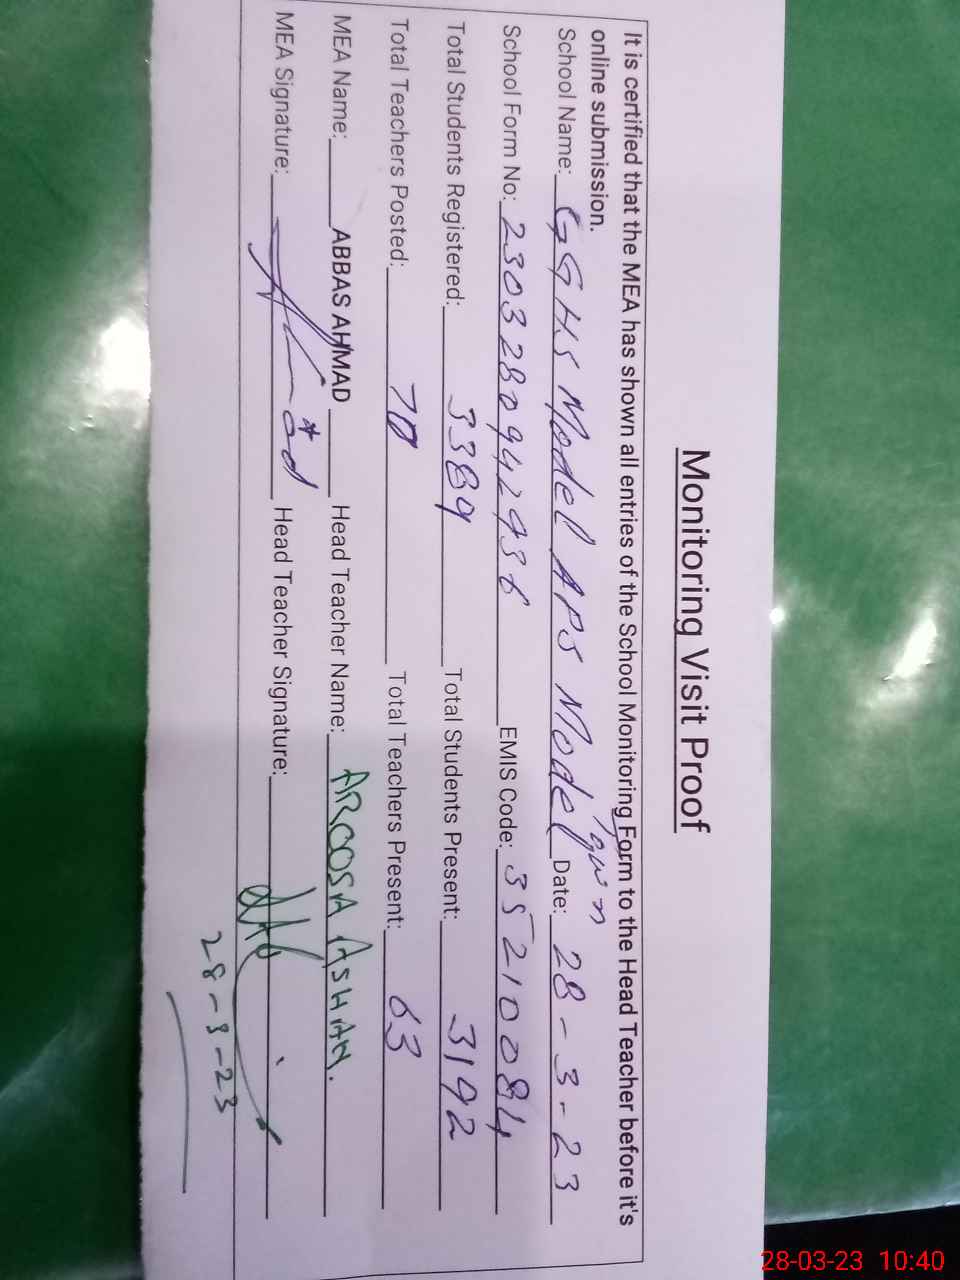 Monitoring Visit Proof
It is certified that the MEA has shown all entries of the School Monitoring Form to the Head Teacher before it's
online submission.
School Name: GGHS Model APS Model Town Date: 28-3-23
School Form No: 23032809424936 EMIS Code: 35210084
Total Students Registered: 3389 Total Students Present: 3192
Total Teachers Posted: 70 Total Teachers Present: 63
MEA Name: ABBAS AHMAD Head Teacher Name: AROOSA ASHAN.
MEA Signature: Head Teacher Signature:
28-3-23
28-03-23 10:40